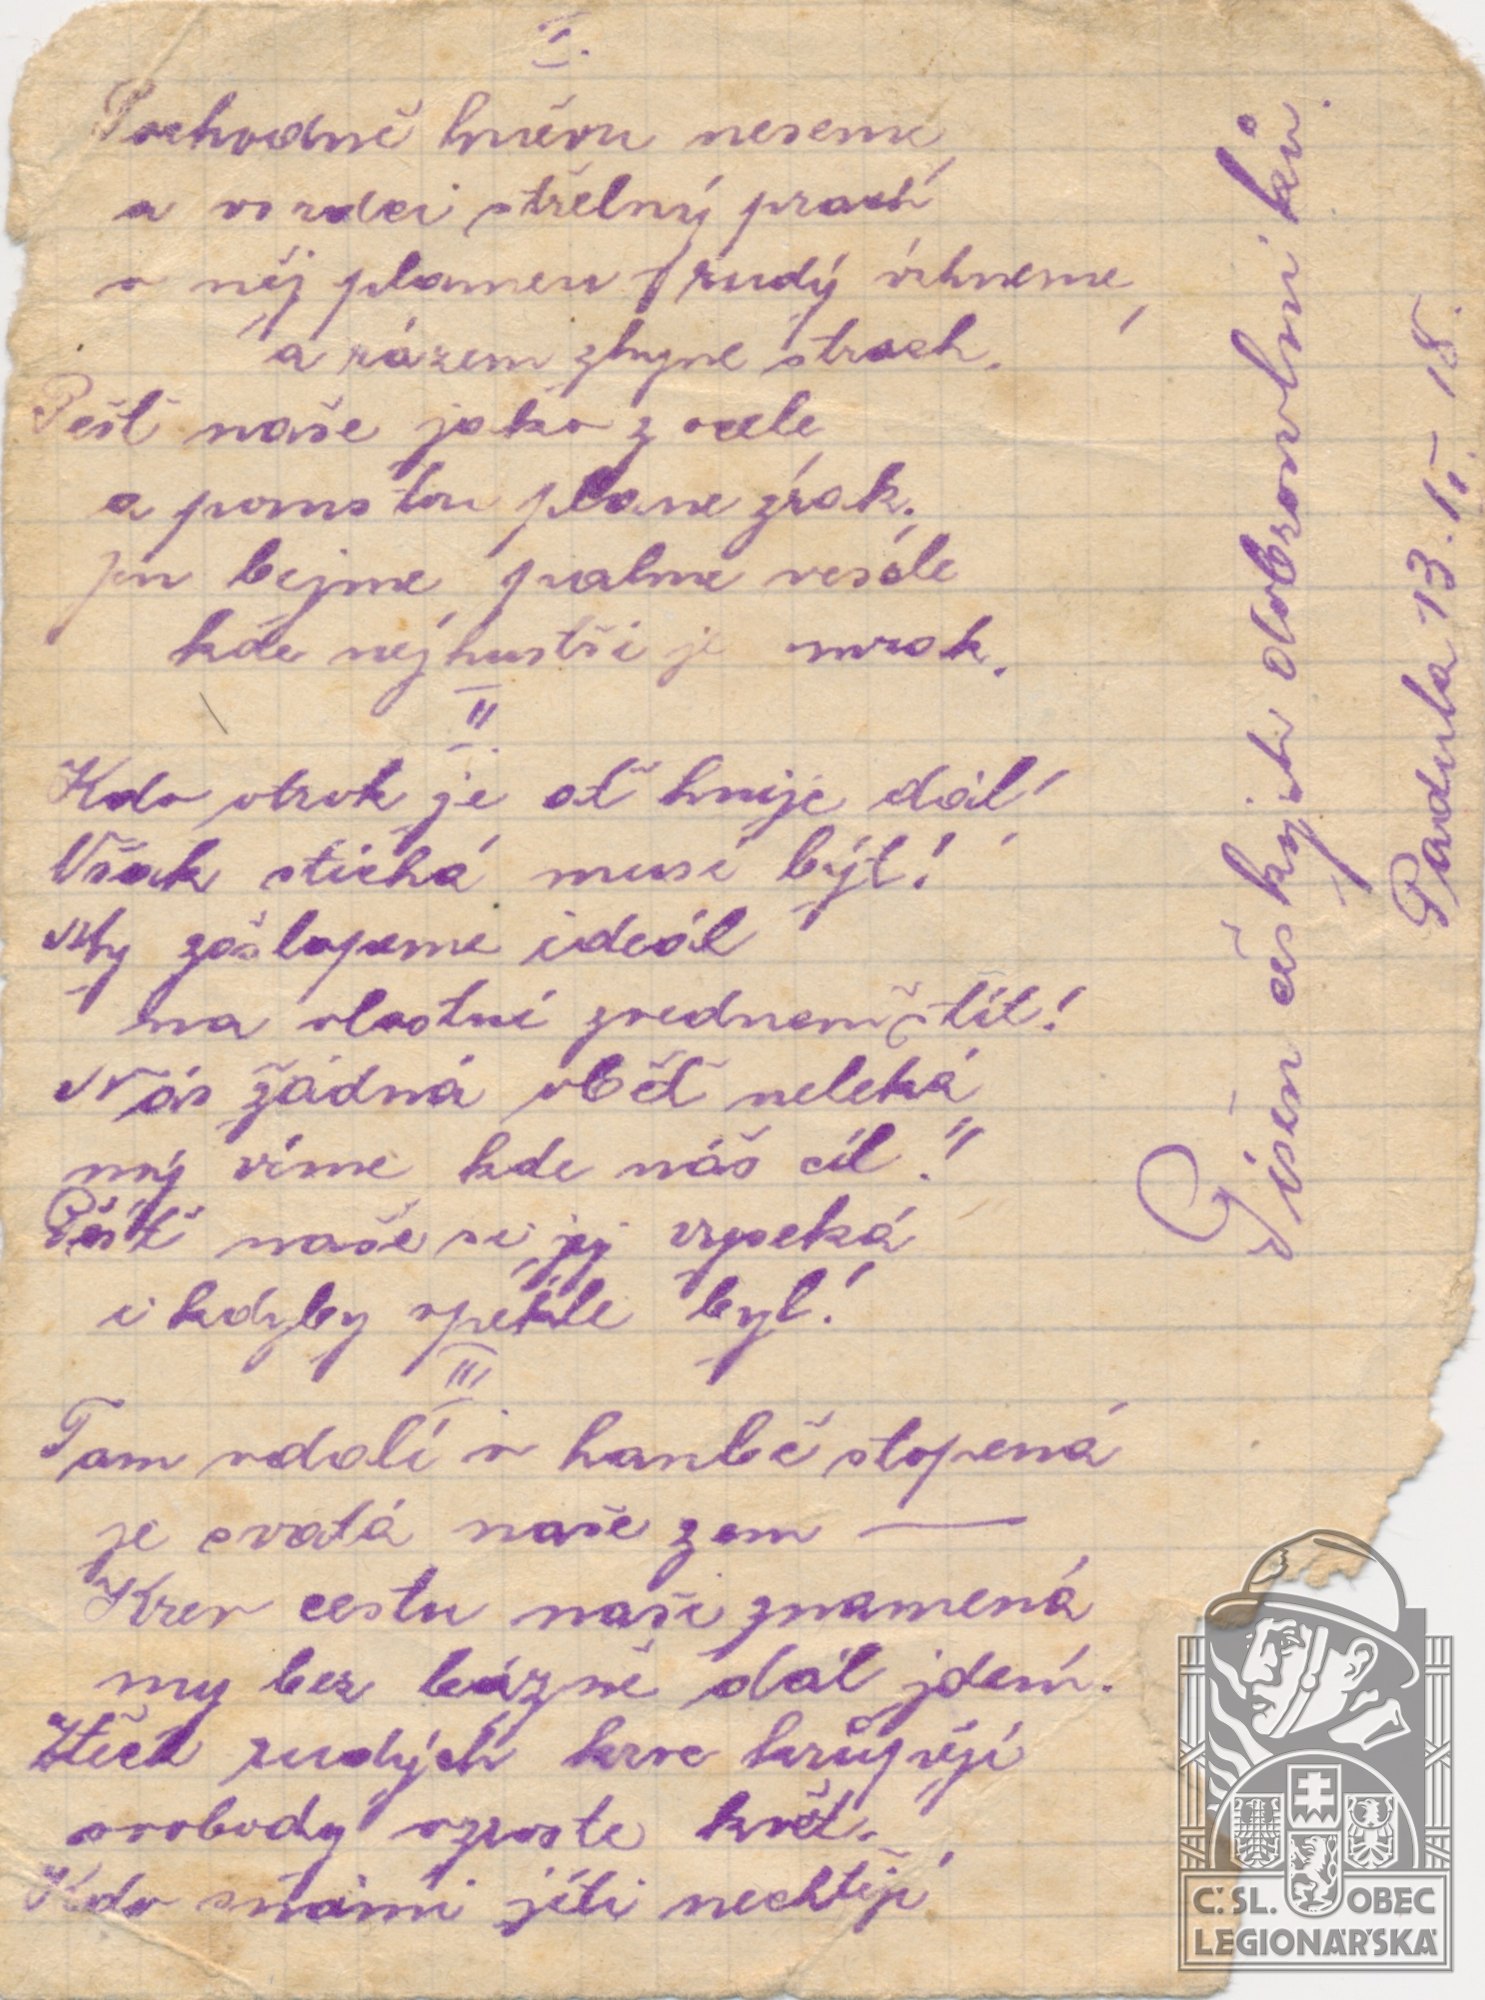 I.
Pochodně hněvu neseme
a v srdci střelný prach
v něj plamen rudý vrhneme,
a rázem zhyne strach.
Pěst naše jako z ocele
a pomstou plane zrak.
jen bejme, palme vesele
kde nejhustší je mrak.
II.
Kdo otrok je ať hnije dál!
Však stichá musí být!
My zašlapeme ideál
na vlastní zvednem štít!
Nás žádná oběť neleká
my víme kde náš cíl!
Pěst naše si jej vyseká
i kdyby v pekle byl!
III
Tam vdolí v hanbě stopená
je svatá naše zem —
Krev cestu naši znamená
my bez bázně dál jdem.
Ztěch rudých krve krůpějí
svobody vzroste květ.
Kdo snámi jíti nechtějí
Písen českých dobrovolníků.
Padula 13. II - 18.
Č.SL. OBEC
LEGIONÁŘSKÁ